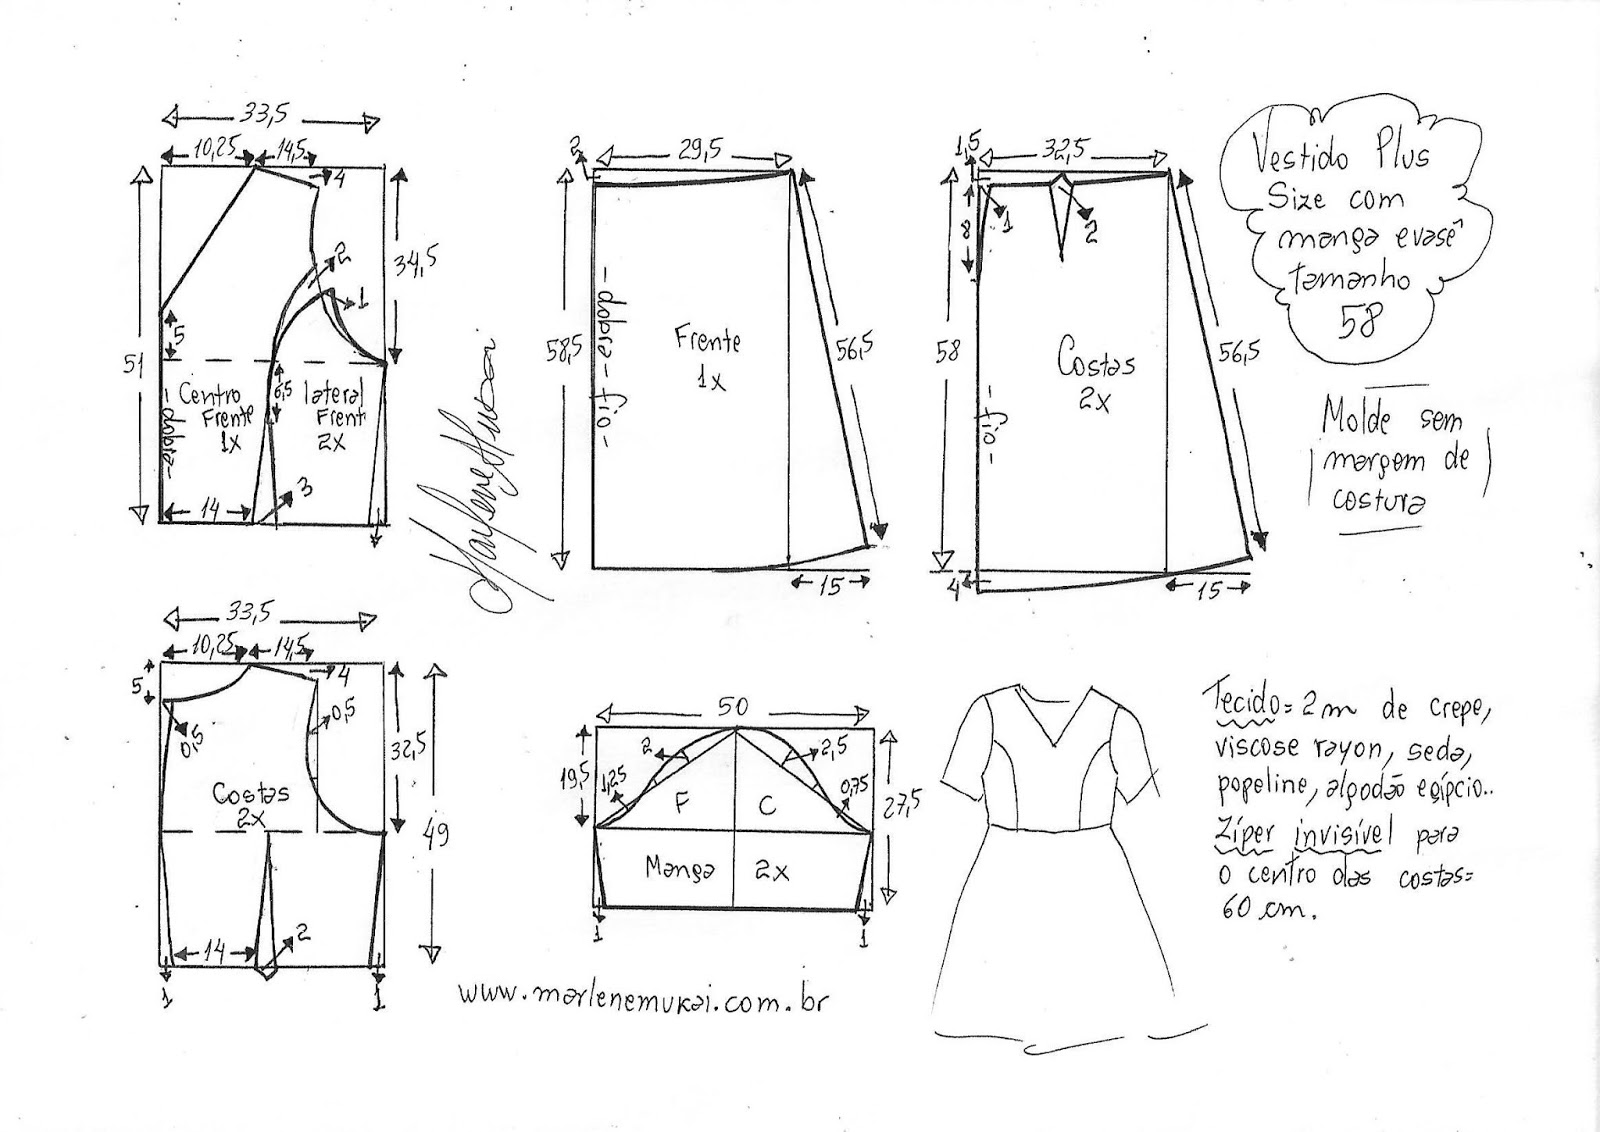 33,5
10,25
14,5
4
51
34,5
2
1
5
6,5
Centro
Frente
1x
lateral
Frent
2x
- dobra -
14
3
Marlene Mukai
2
29,5
58,5
- dobra - fio -
Frente
1x
56,5
15
1,5
32,5
58
8
1
2
- fio -
Costas
2x
56,5
4
15
Vestido Plus
Size com
manga evasê
tamanho
58
Molde sem
margem de
costura
33,5
10,25
14,5
5
4
0,5
0,5
32,5
49
Costas
2x
14
2
1
1
50
19,5
2
2,5
1,25
0,75
F
C
27,5
Manga 2x
1
1
www.marlenemukai.com.br
Tecido = 2m de crepe,
viscose rayon, seda,
popeline, algodão egípcio..
Zíper invisível para
o centro das costas =
60 cm.